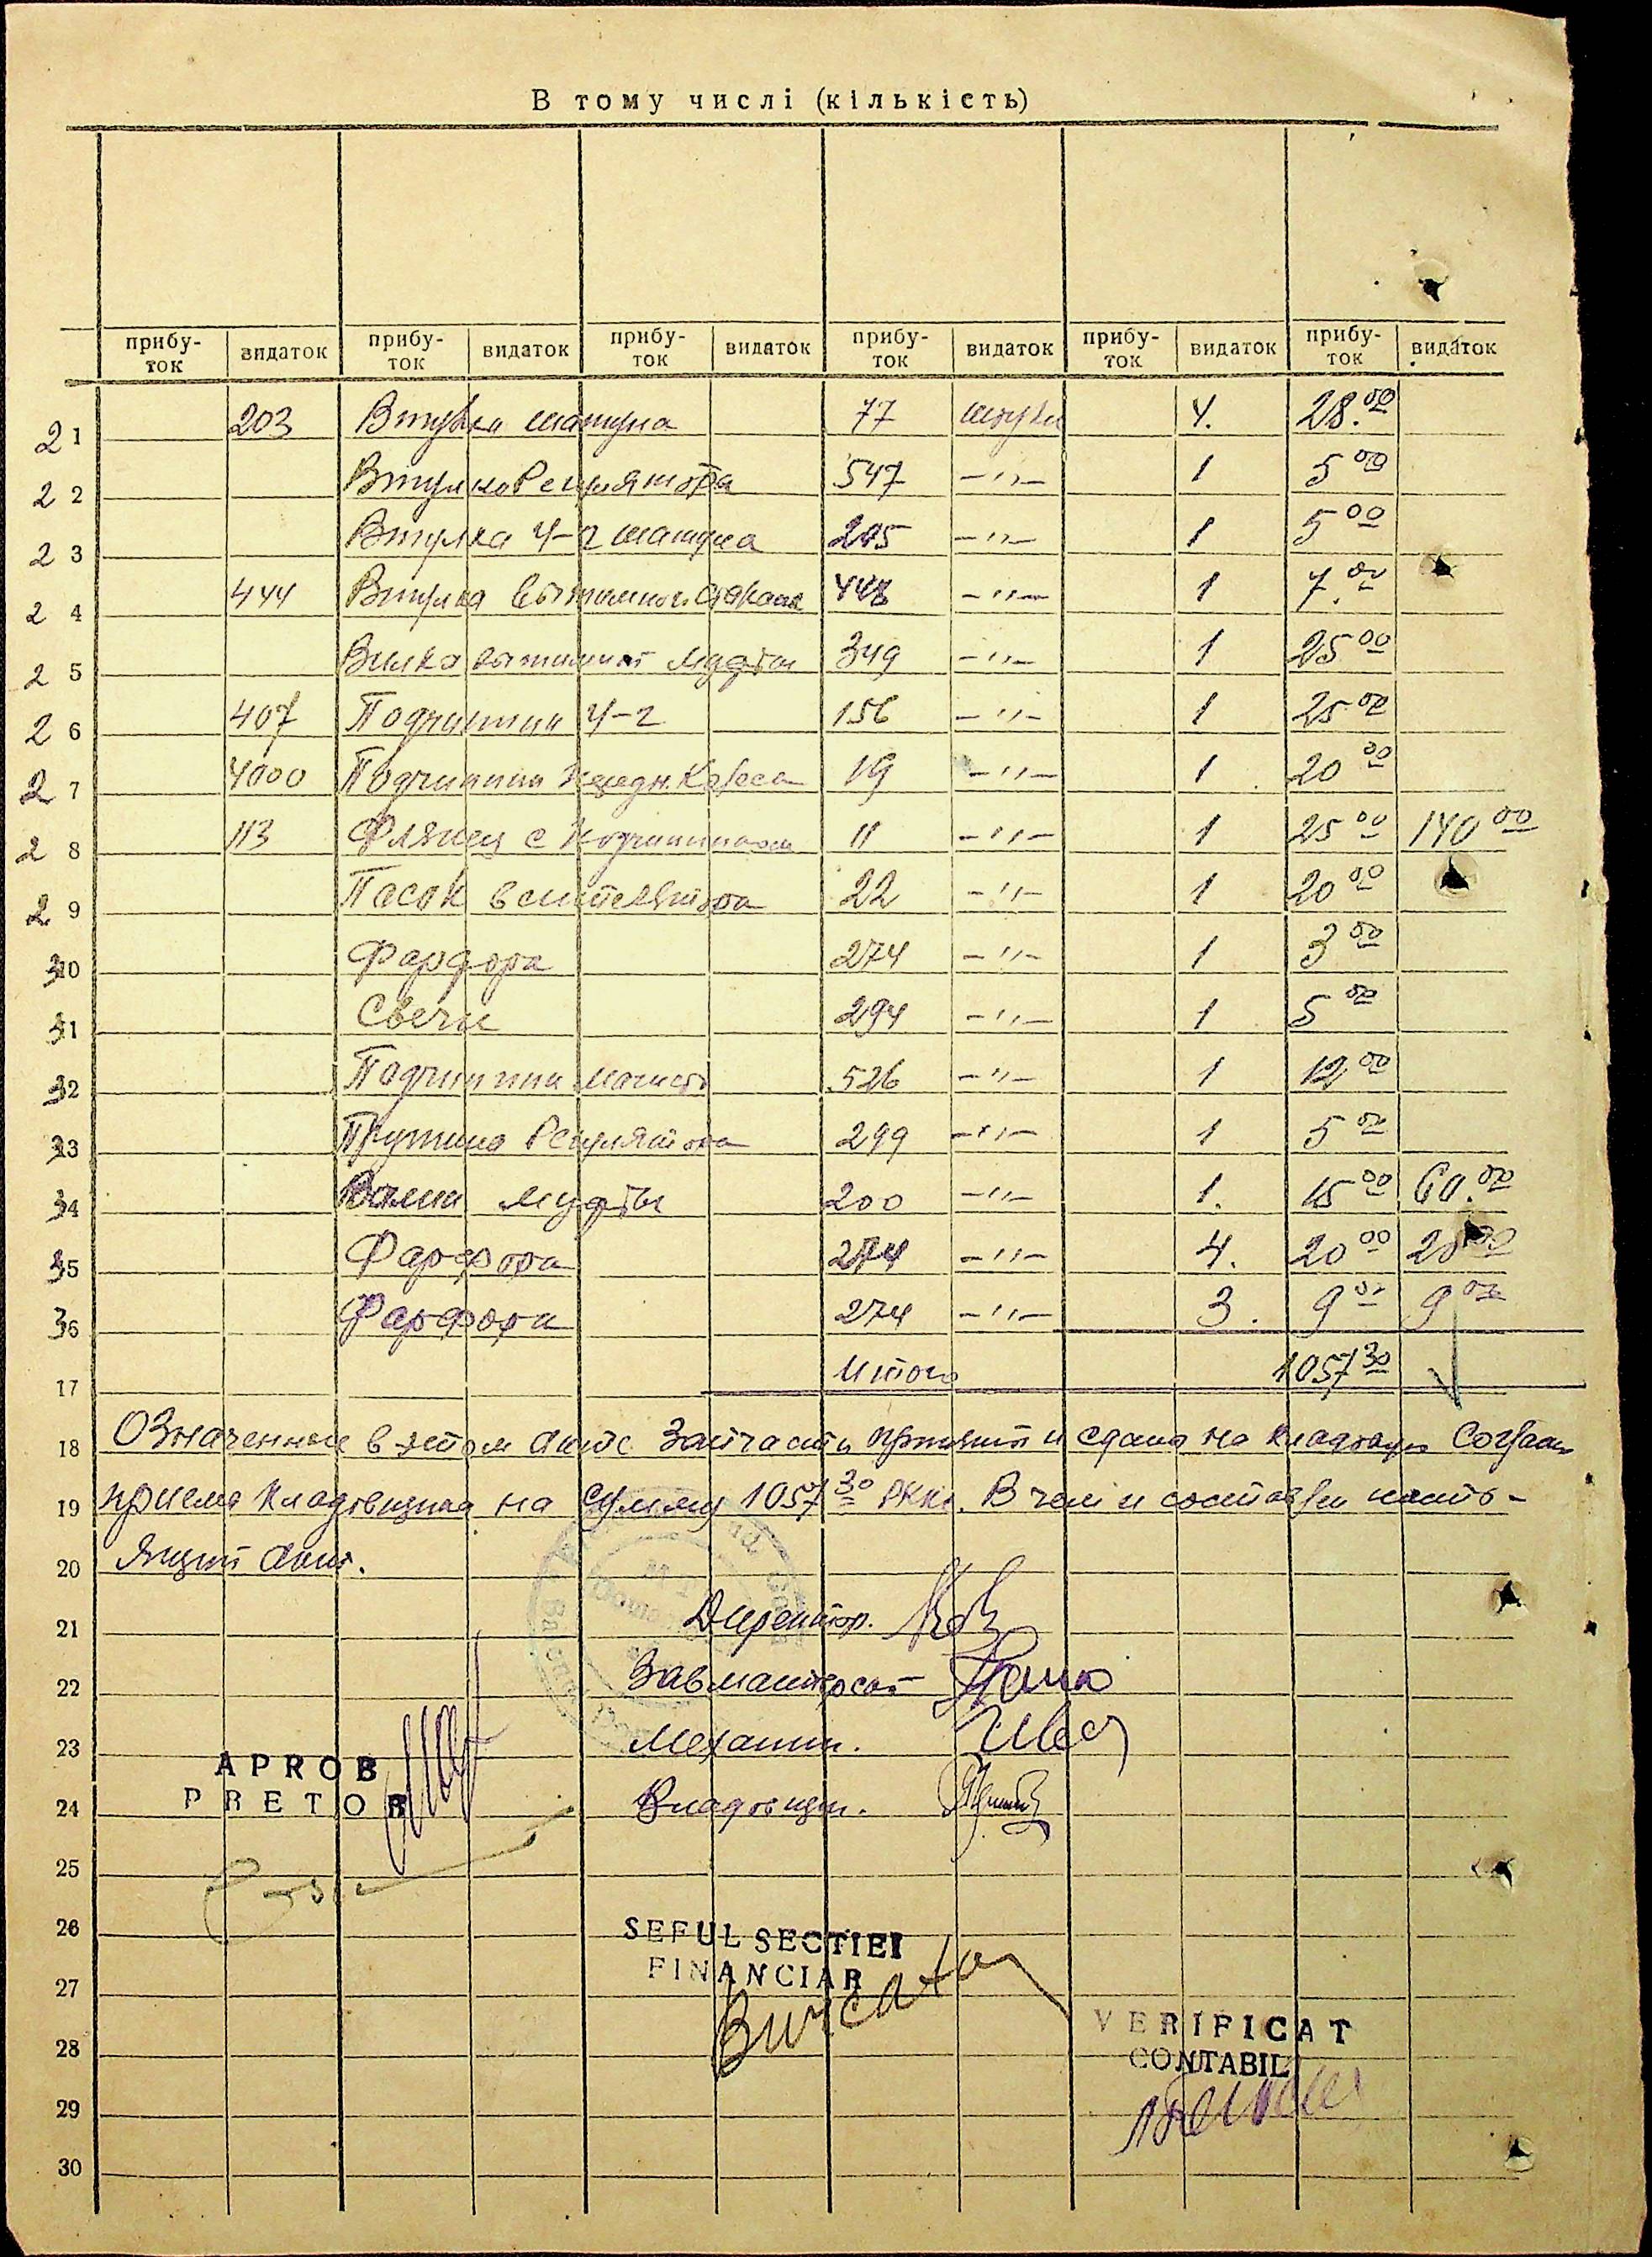 В тому числі (кількість)
прибу-ток видаток прибу-ток видаток прибу-ток видаток прибу-ток видаток прибу-ток видаток прибу-ток видаток
21 203 Втулка шатуна 77 штуки 4. 28.00
22 Втулка Регулятора 547 —"— 1 5 00
23 Втулка Ч-г шатуна 205 —"— 1 5 00
24 444 Втулка 448 —"— 1 7.00
25 Вилка муфты 349 —"— 1 25 00
26 407 Подчипник Ч-г 156 —"— 1 25 00
27 4000 Подчипник 19 —"— 1 20 00
28 113 Флянец с Подчипником 11 —"— 1 25 00 140 00
29 Пасок вентелятора 22 —"— 1 20 00
30 Фарфора 274 —"— 1 3 00
31 Свечи 294 —"— 1 5 00
32 Подчипник магнето 526 —"— 1 12 00
33 Пружина Регулятора 299 —"— 1 5 00
34 муфты 200 —"— 1. 15 00 60.00
35 Фарфора 274 —"— 4. 20 00 20 00
36 Фарфора 274 —"— 3. 9 00 9 00
17 Итого 1057 30
18 Означенные в этом акте Запчасти приняты и сдана на кладовую
19 приема кладовщика на сумму 1057 30 РККс. В чем и составлен насто-
20 ящий акт.
21 Директор.
22 Завмастерской
23 Механик.
APROB
24 PRETOR Кладовщик.
25
26 SEFUL SECTIEI
27 FINANCIAR
VERIFICAT
28 CONTABIL
29
30